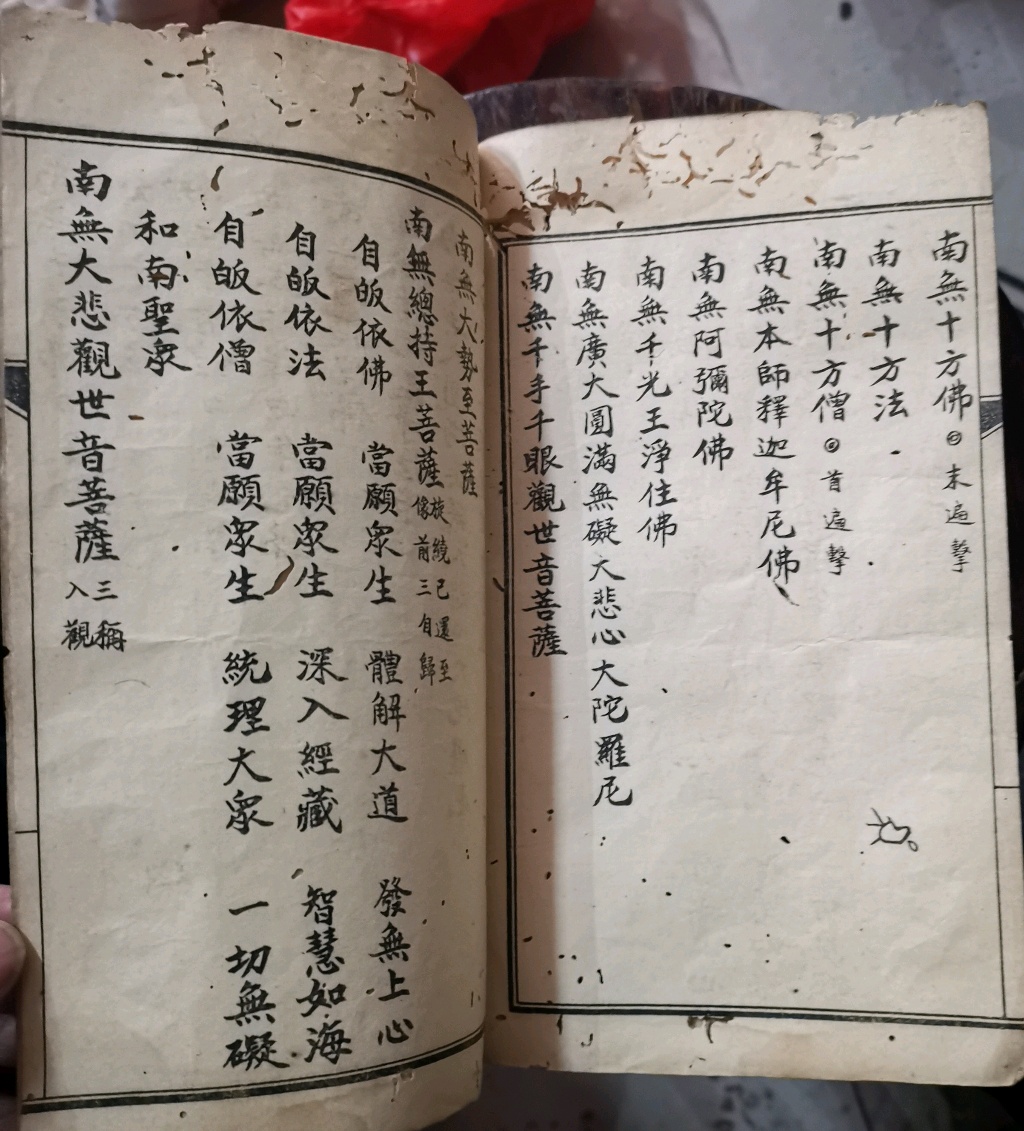 南無十方佛 末遍擊
南無十方法
南無十方僧 首遍擊
南無本師釋迦牟尼佛
南無阿彌陀佛
南無千光王淨住佛
南無廣大圓滿無礙大悲心大陀羅尼
南無千手千眼觀世音菩薩
南無大勢至菩薩
南無總持王菩薩 旋繞已還至像前三自歸
自皈依佛 當願眾生 體解大道 發無上心
自皈依法 當願眾生 深入經藏 智慧如海
自皈依僧 當願眾生 統理大眾 一切無礙
和南聖眾
南無大悲觀世音菩薩 三稱入觀